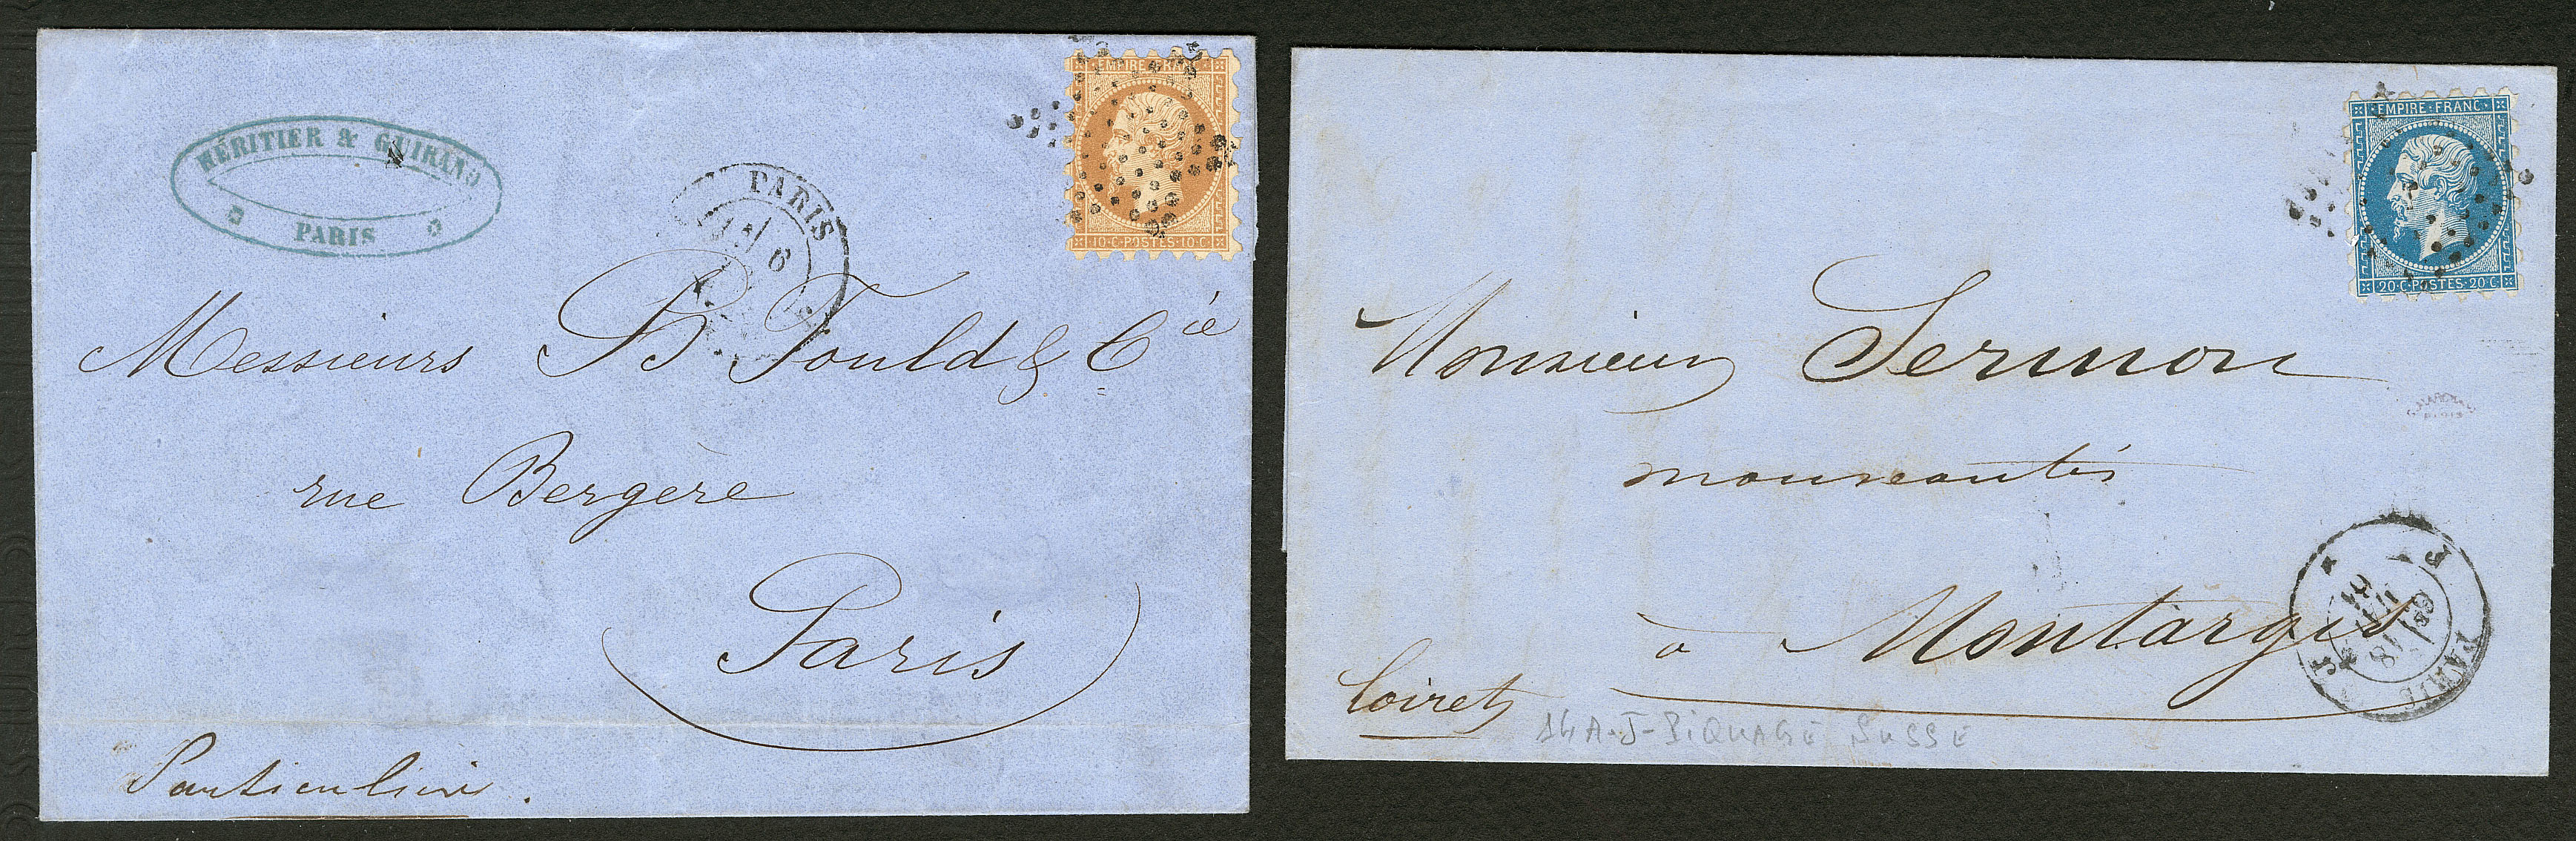 HÉRITIER & GUIRAND
PARIS
EMPIRE FRANC
10·C·POSTES·10·C·
PARIS
6
Messieurs B Fould & Cie
rue Bergère
Paris
Particulière.
EMPIRE·FRANC·
20·C·POSTES·20·C
Monsieur Sermon
nouveautés
PARIS
à Montargis
PARIS
18
Loiret
14A-J-PiQUAGE SUSSE